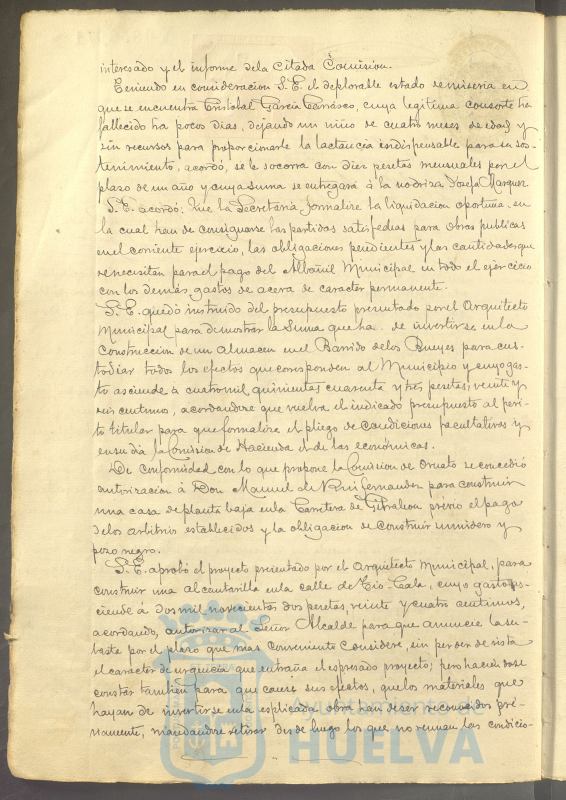 interesado y el informe de la citada Comision.
Teniendo en consideracion S.E. el deplorable estado de miseria en
que se encuentra Cristobal Garcia Carrasco, cuya legitima consorte ha
fallecido ha pocos dias, dejando un niño de cuatro meses de edad, y
sin recursos para proporcionarle la lactancia indispensable para su sos-
tenimiento, acordó, se le socorra con diez pesetas mensuales por el
plazo de un año y cuya suma se entregará á la nodriza Josefa Marquez.
S.E. acordó, que la Secretaria formalize la liquidacion oportuna en
la cual han de consignarse las partidas satisfechas para obras publicas
en el corriente ejercicio, las obligaciones pendientes y las cantidades que
se necesitan para el pago del Albañil Municipal en todo el ejercicio
con los demás gastos de acera de caracter permanente.
S.E. quedó instruido del presupuesto presentado por el Arquitecto
Municipal para demostrar la suma que ha de invertirse en la
construccion de un almacen en el Barrido de los Bueyes para cus-
todiar todos los efectos que corresponden al Municipio y cuyo gas-
to asciende á cuatro mil quinientas cuarenta y tres pesetas, veinte y
seis centimos, acordandose que vuelva el indicado presupuesto al peri-
to titular para que formalize el pliego de condiciones facultativas y
en su dia la Comision de Hacienda el de las económicas.
De conformidad con lo que propone la Comision de Ornato se concedió
autorizacion á Don Manuel de Ruiz Fernandez para construir
una casa de planta baja en la Carretera de Gibraleon previo el pago
de los arbitrios establecidos y la obligacion de construir sumidero y
pozo negro.
S.E. aprobó el proyecto presentado por el Arquitecto Municipal, para
construir una alcantarilla en la calle de Tio-Cala, cuyo gasto as-
ciende á dos mil novecientas dos pesetas, veinte y cuatro centimos,
acordando, autorizar al Señor Alcalde para que anuncie la su-
basta por el plazo que mas conveniente considere, sin perder de vista
el caracter de urgencia que entraña el espresado proyecto; pero haciendose
constar tambien para que cause sus efectos, que los materiales que
hayan de invertirse en la esplicada obra han de ser reconocidos pré-
viamente, mandandose retirar desde luego los que no reunan las condicio-
HUELVA